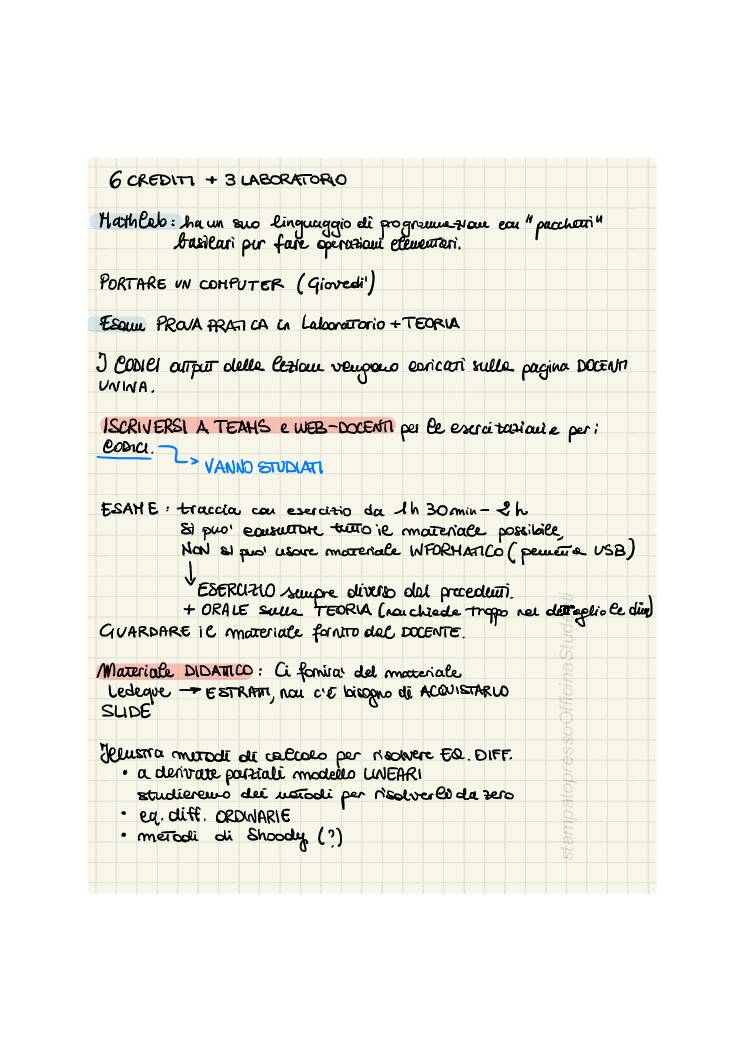 6 CREDITI + 3 LABORATORIO
MathLab: ha un suo linguaggio di programmazione con "pacchetti"
basilari per fare operazioni elementari.
PORTARE UN COMPUTER (Giovedì)
Esame PROVA PRATICA in Laboratorio + TEORIA
I CODICI output della lezione vengono caricati sulla pagina DOCENTI
UNINA.
ISCRIVERSI A TEAMS e WEB-DOCENTI per le esercitazioni e per i
CODICI.
VANNO STUDIATI
ESAME: traccia con esercizio da 1h 30min - 2h
Si puo' consultare tutto il materiale possibile,
NON si puo' usare materiale INFORMATICO (pennetta USB)
ESERCIZIO sempre diverso dai precedenti.
+ ORALE sulla TEORIA (non chiede troppo nel dettaglio le dim)
GUARDARE il materiale fornito dal DOCENTE.
Materiale DIDATTICO: Ci fornira' del materiale
Ledeque → ESTRATTI, non c'è bisogno di ACQUISTARLO
SLIDE
Illustra metodi di calcolo per risolvere EQ. DIFF.
• a derivate parziali modello LINEARI
studieremo dei metodi per risolverli da zero
• eq. diff. ORDINARIE
• metodi di Shoody (?)
stampatopressoOfficinaStudenti